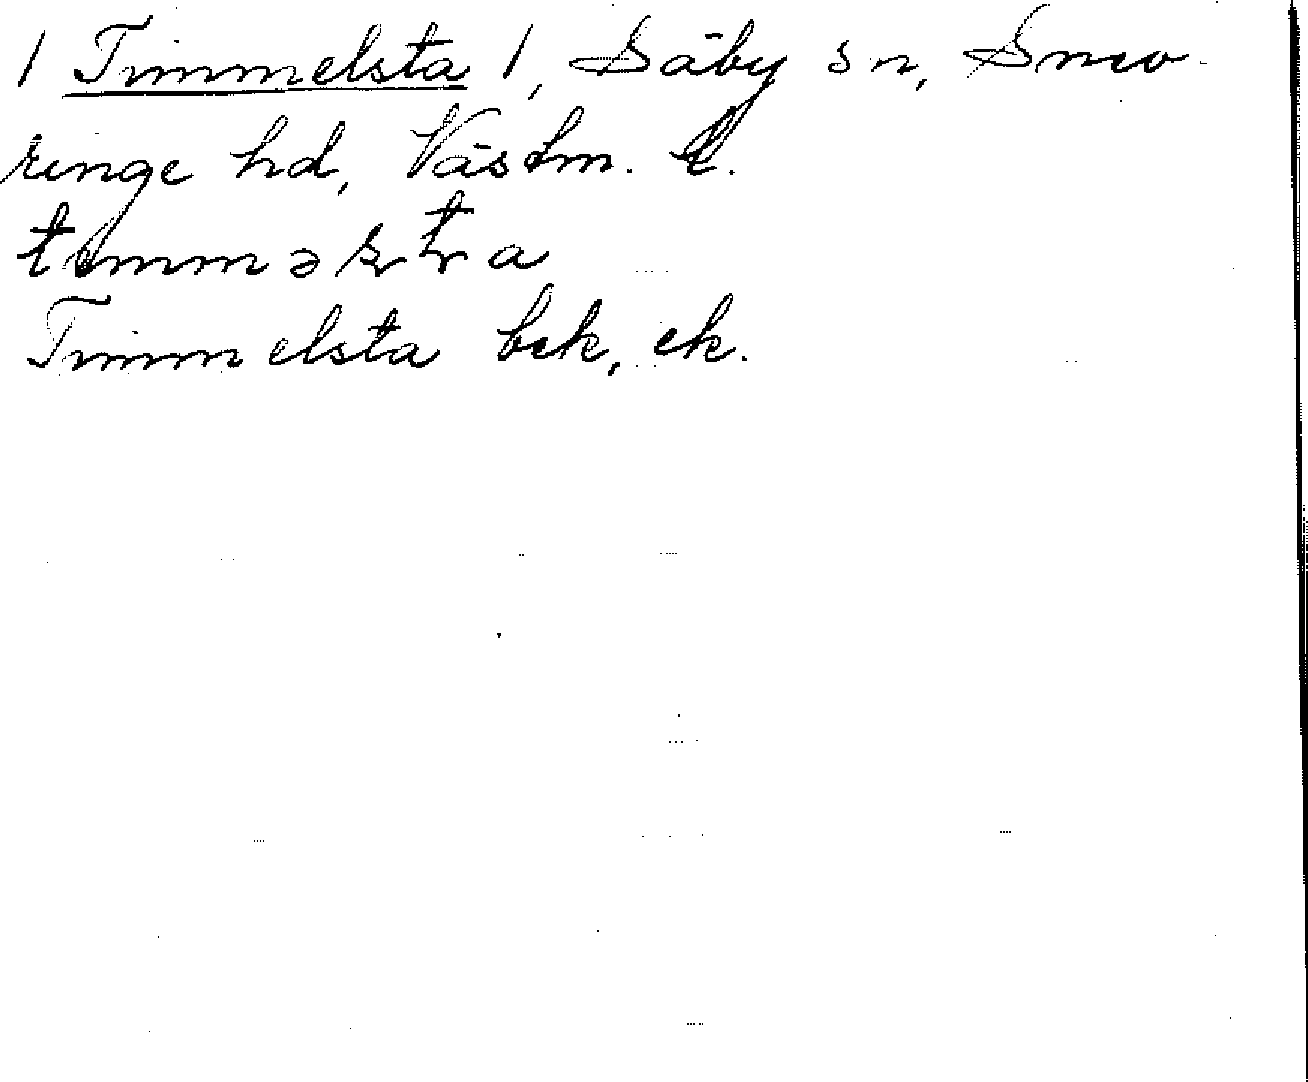 / Timmelsta /, Säby sn, Snev-
ringe hd, Västm. l.
timməʂʈa
Timmelsta bek, ek.